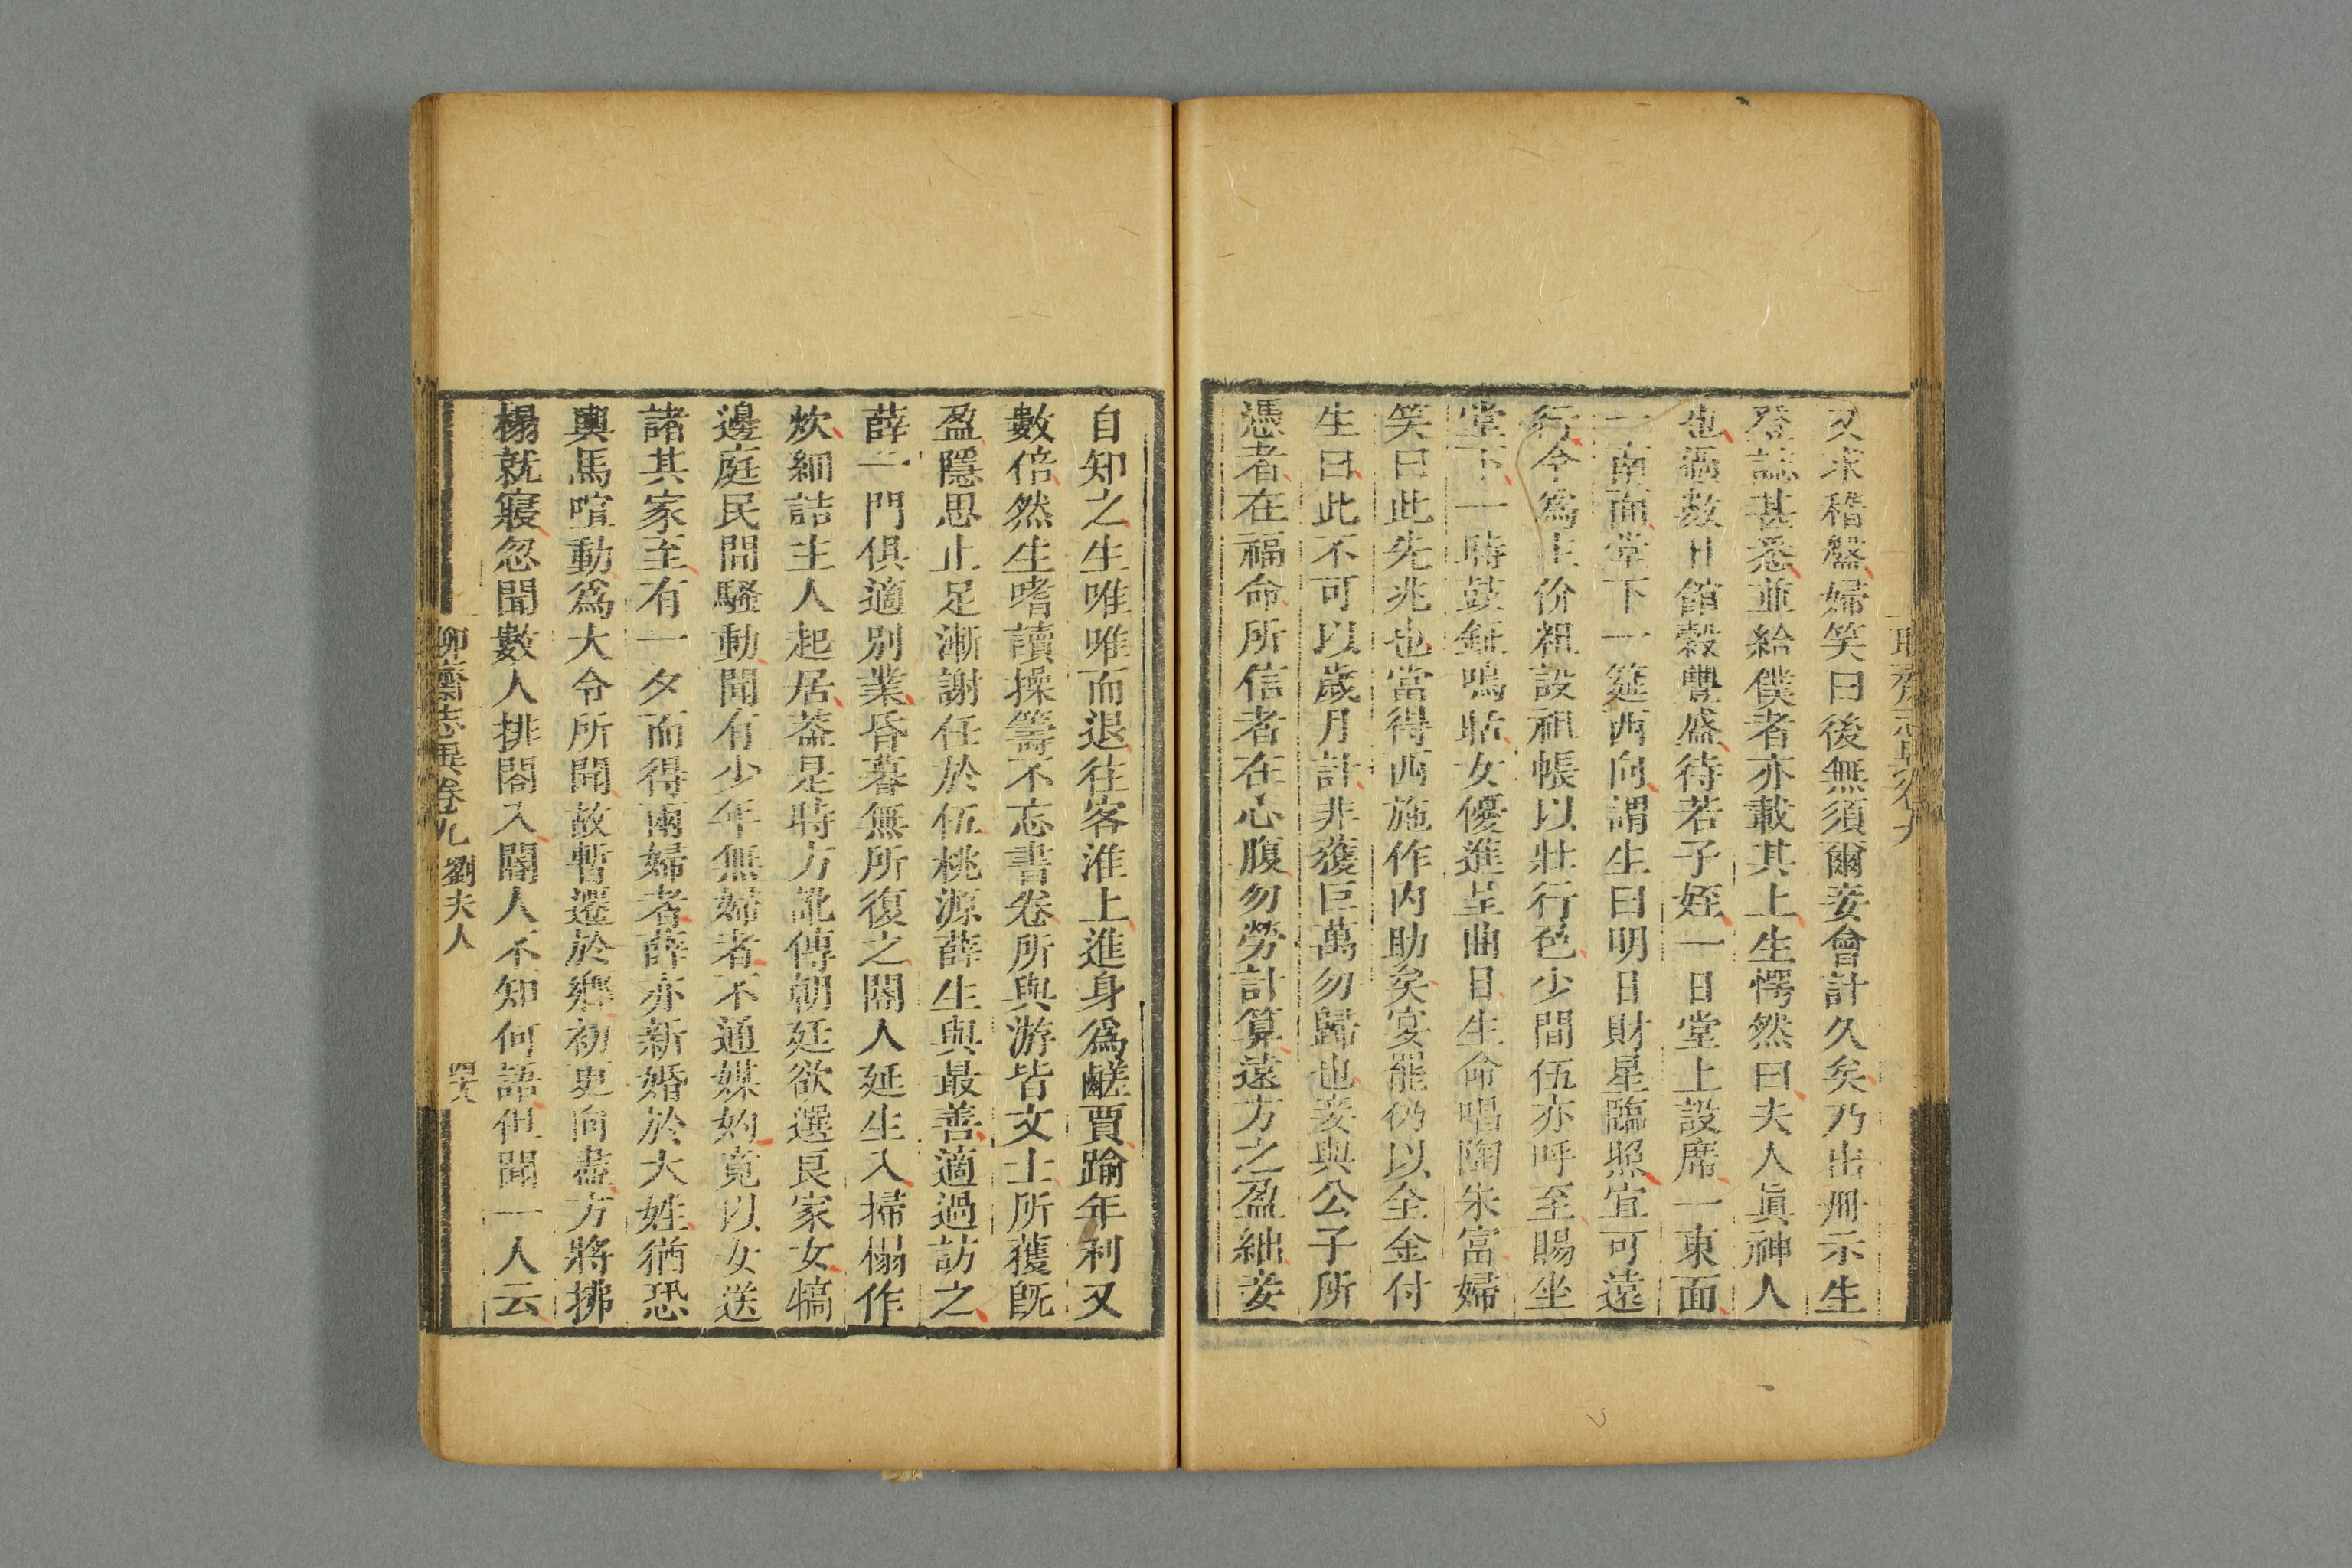 又求稽盤婦笑曰後無須爾妾會計久矣乃出冊示生
登誌甚悉並給僕者亦載其上生愕然曰夫人眞神人
也過數日館穀豐盛待若子姪一日堂上設席一東面
一南面堂下一筵西向謂生曰明日財星臨照宜可遠
行今爲主价粗設祖帳以壯行色少間伍亦呼至賜坐
堂下一時鼓鉦鳴聒女優進呈曲目生命唱陶朱富婦
笑曰此先兆也當得西施作內助矣宴罷仍以全金付
生曰此不可以歲月計非獲巨萬勿歸也妾與公子所
憑者在福命所信者在心腹勿勞計算遠方之盈絀妾
自知之生唯唯而退往客淮上進身爲鹺賈踰年利又
數倍然生嗜讀操籌不忘書卷所與游皆文士所獲旣
盈隱思止足漸謝任於伍桃源薛生與最善適過訪之
薛一門俱適別業昏暮無所復之閽人延生入掃榻作
炊細詰主人起居蓋是時方訛傳朝廷欲選良家女犒
邊庭民間騷動聞有少年無婦者不通媒妁竟以女送
諸其家至有一夕而得兩婦者薛亦新婚於大姓猶恐
輿馬喧動爲大令所聞故暫遷於鄉初更向盡方將拂
榻就寢忽聞數人排闔入閽人不知何語但聞一人云
聊齋志異卷九 劉夫人